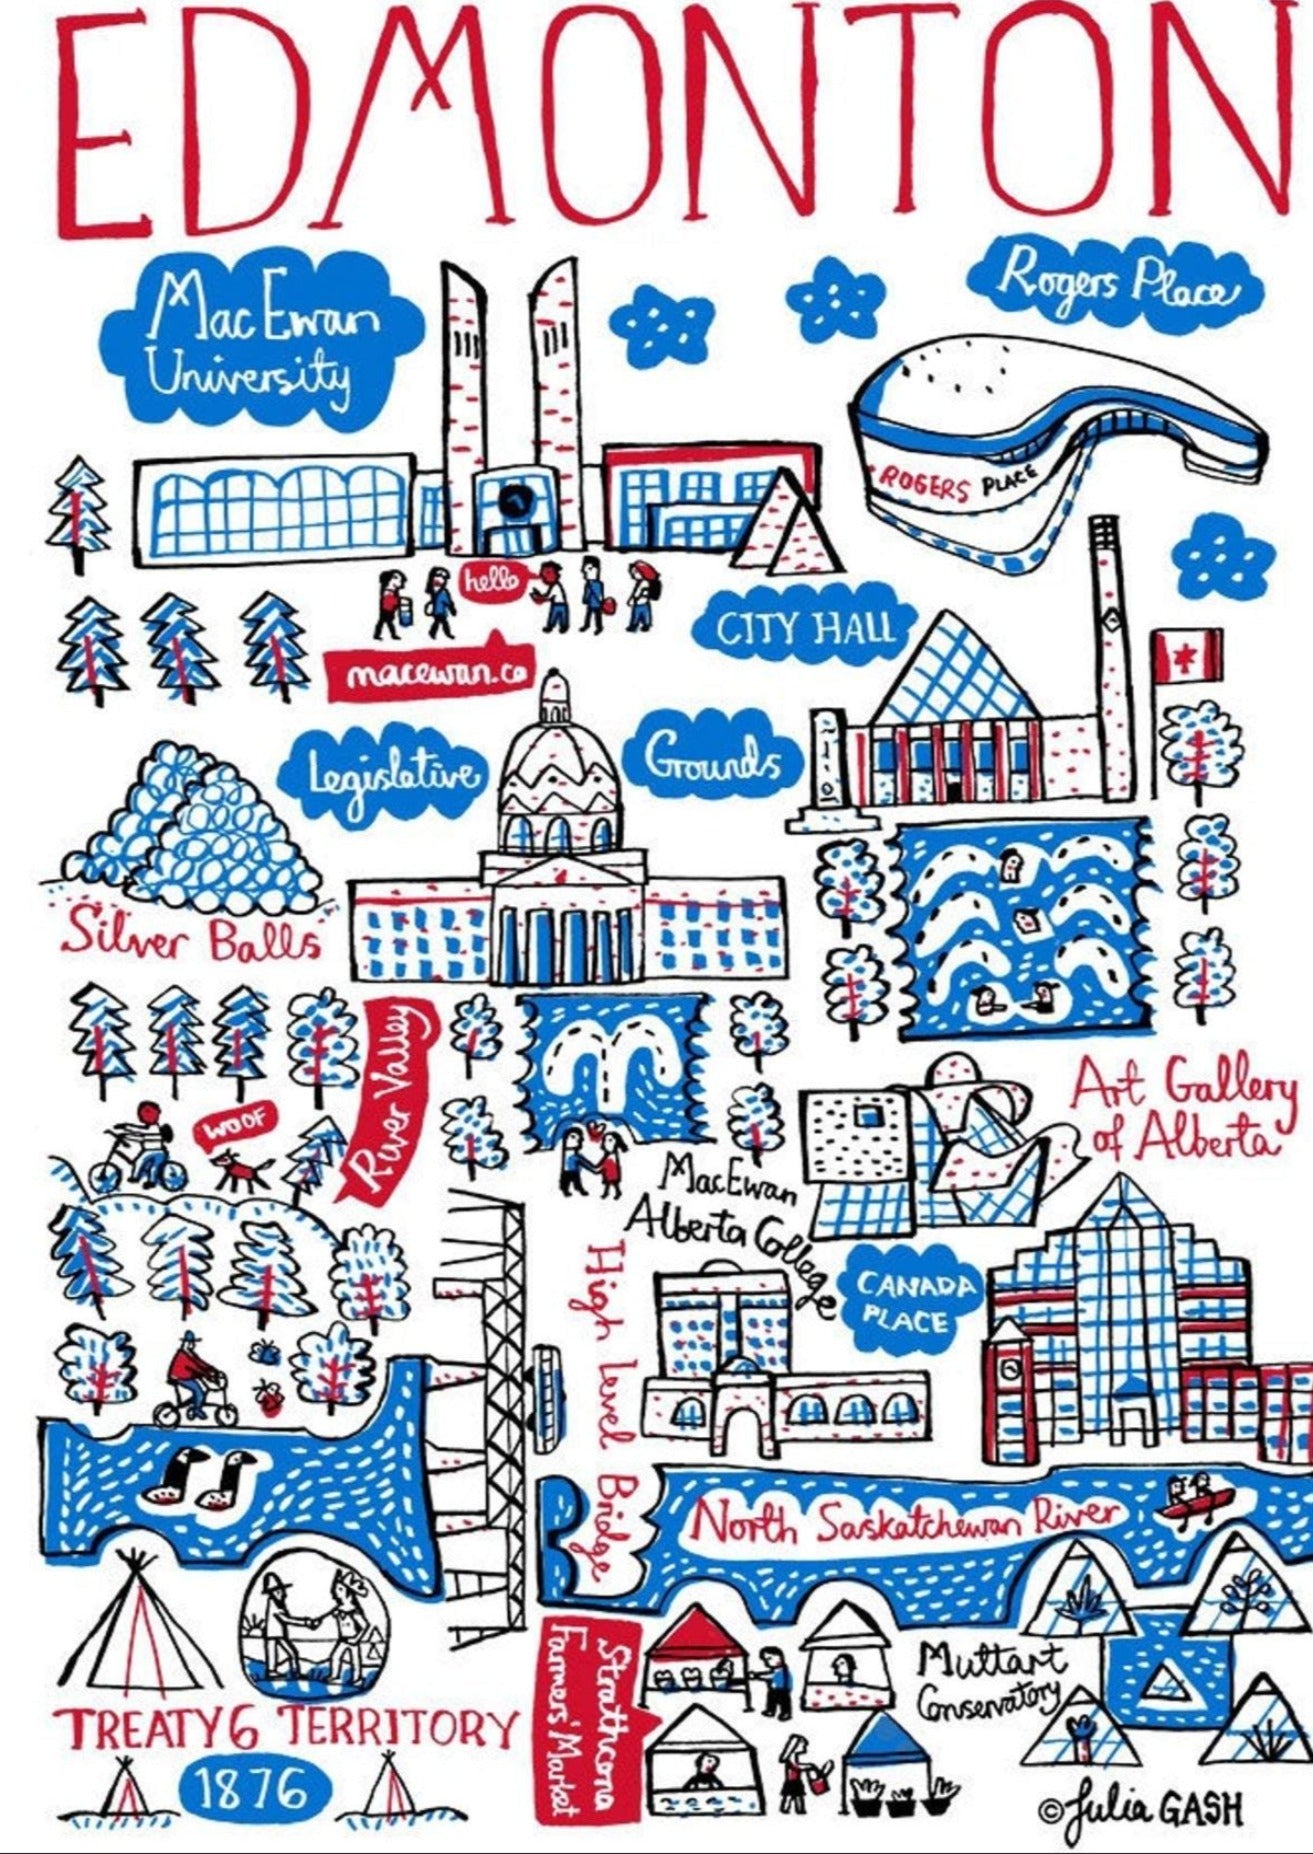 EDMONTON
MacEwan
University
Rogers Place
ROGERS PLACE
hello
macewan.ca
CITY HALL
Legislative
Grounds
Silver Balls
River Valley
WOOF
Art Gallery
of Alberta
MacEwan
Alberta College
CANADA
PLACE
High Level Bridge
North Saskatchewan River
Strathcona
Farmers' Market
Muttart
Conservatory
TREATY 6 TERRITORY
1876
© Julia GASH